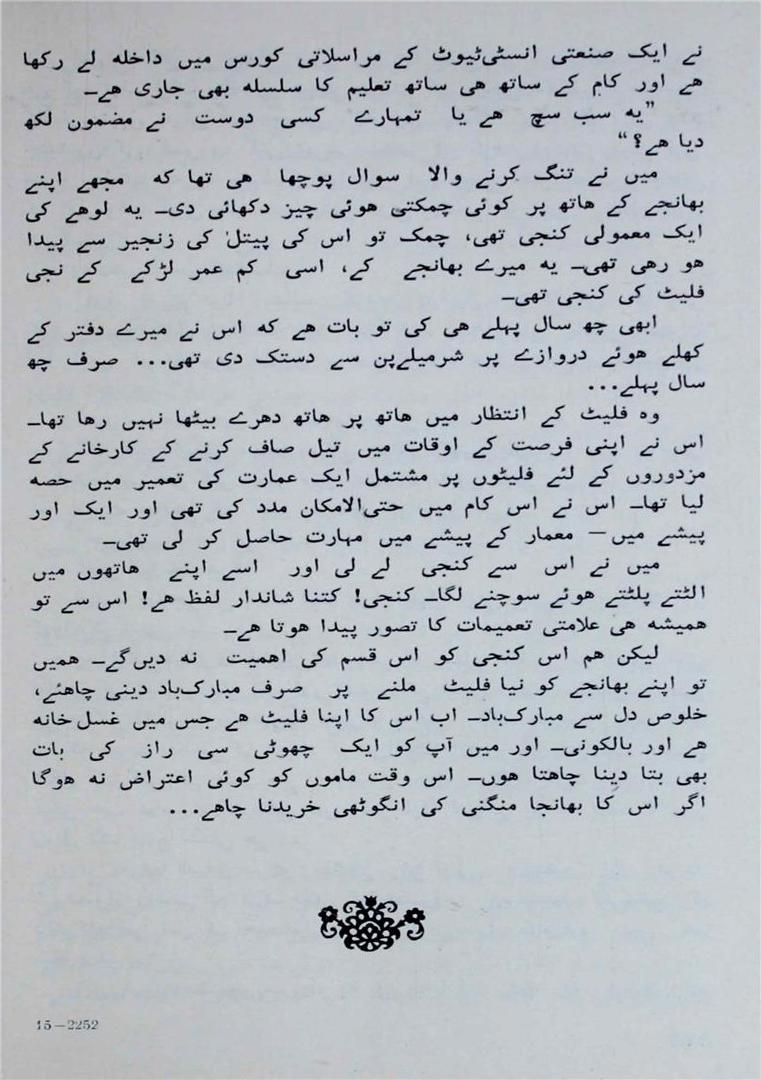 نے ایک صنعتی انسٹی‌ٹیوٹ کے مراسلاتی کورس میں داخله لے رکھا
ھے اور کام کے ساتھ ھی ساتھ تعلیم کا سلسله بھی جاری ھے۔
”یه سب سچ ھے یا تمہارے کسی دوست نے مضمون لکھ
دیا ھے؟“
میں نے تنگ کرنے والا سوال پوچھا ھی تھا که مجھے اپنے
بھانجے کے ھاتھ پر کوئی چمکتی ھوئی چیز دکھائی دی۔ یه لوھے کی
ایک معمولی کنجی تھی، چمک تو اس کی پیتل کی زنجیر سے پیدا
ھو رھی تھی۔ یه میرے بھانجے کے، اسی کم عمر لڑکے کے نجی
فلیٹ کی کنجی تھی۔
ابھی چھ سال پہلے ھی کی تو بات ھے که اس نے میرے دفتر کے
کھلے ھوئے دروازے پر شرمیلے‌پن سے دستک دی تھی... صرف چھ
سال پہلے...
وہ فلیٹ کے انتظار میں ھاتھ پر ھاتھ دھرے بیٹھا نہیں رھا تھا۔
اس نے اپنی فرصت کے اوقات میں تیل صاف کرنے کے کارخانے کے
مزدوروں کے لئے فلیٹوں پر مشتمل ایک عمارت کی تعمیر میں حصه
لیا تھا۔ اس نے اس کام میں حتی‌الامکان مدد کی تھی اور ایک اور
پیشے میں — معمار کے پیشے میں مہارت حاصل کر لی تھی۔
میں نے اس سے کنجی لے لی اور اسے اپنے ھاتھوں میں
الٹتے پلٹتے ھوئے سوچنے لگا۔ کنجی! کتنا شاندار لفظ ھے! اس سے تو
ھمیشه ھی علامتی تعمیمات کا تصور پیدا ھوتا ھے۔
لیکن ھم اس کنجی کو اس قسم کی اھمیت نه دیں‌گے۔ ھمیں
تو اپنے بھانجے کو نیا فلیٹ ملنے پر صرف مبارک‌باد دینی چاھئے،
خلوص دل سے مبارک‌باد۔ اب اس کا اپنا فلیٹ ھے جس میں غسل‌خانه
ھے اور بالکونی۔ اور میں آپ کو ایک چھوٹی سی راز کی بات
بھی بتا دینا چاھتا ھوں۔ اس وقت ماموں کو کوئی اعتراض نه ھوگا
اگر اس کا بھانجا منگنی کی انگوٹھی خریدنا چاھے...
15—2252